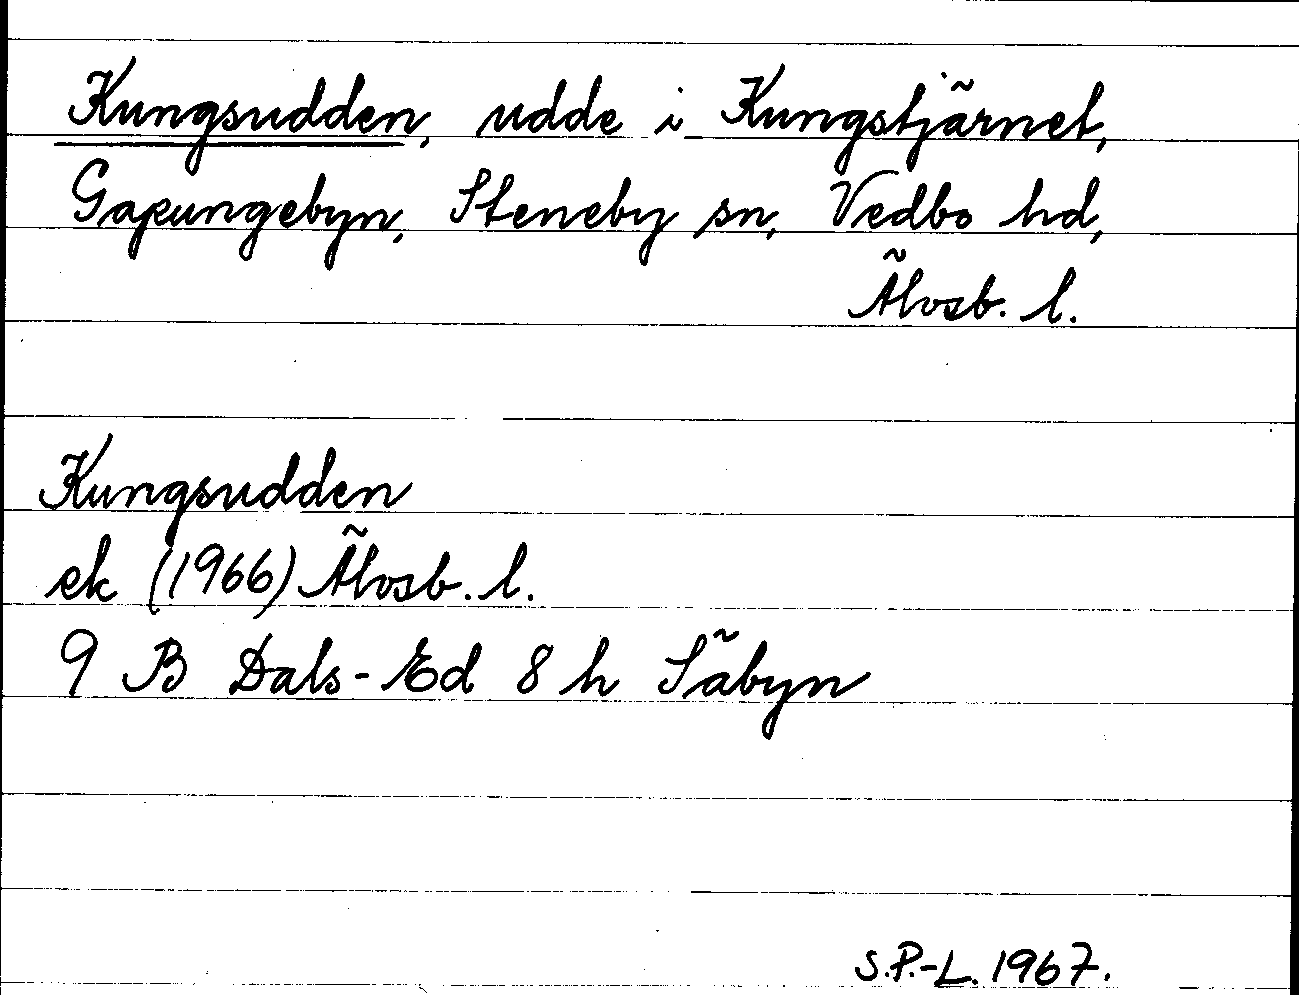 Kungsudden, udde i Kungstjärnet,
Gapungebyn, Steneby sn, Vedbo hd,
Älvsb. l.
Kungsudden
ek (1966) Älvsb. l.
9 B Dals-Ed 8 h Säbyn
S.P.-L. 1967.